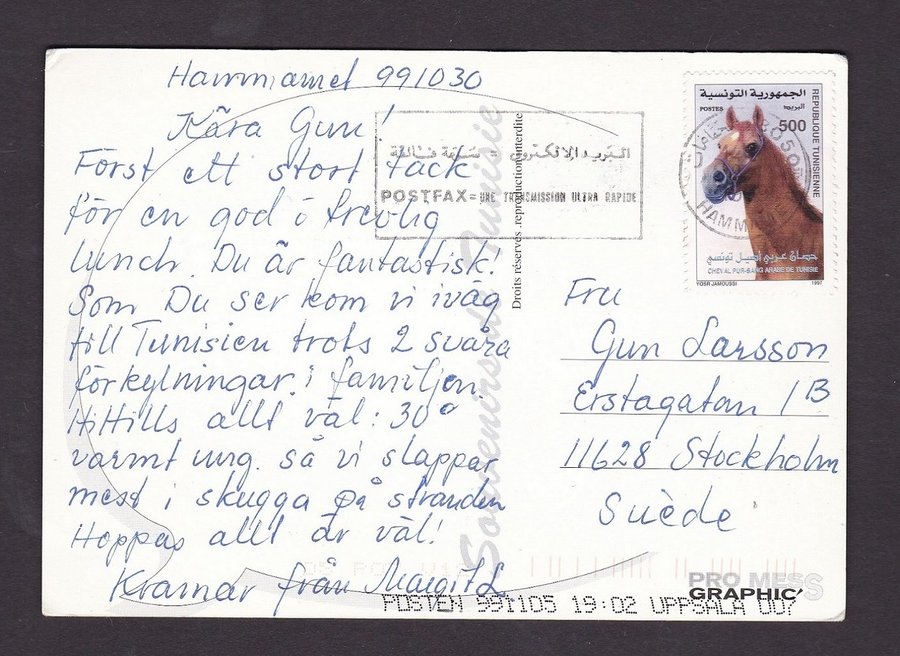 Hammamet 991030
Kära Gun!
Först ett stort tack
för en god o trevlig
lunch. Du är fantastisk!
Som Du ser kom vi iväg
till Tunisien trots 2 svåra
förkylningar i familjen.
Hittills allt väl: 30°
varmt ung. så vi slappar
mest i skugga på stranden
Hoppas allt är väl!
Kramar från Margit L
البريد الإلكتروني = سرعة فائقة
POSTFAX = UNE TRANSMISSION ULTRA RAPIDE
Souvenirs de Tunisie
Droits réservés .reproduction interdite
الجمهورية التونسية
POSTES
البريد
500
REPUBLIQUE TUNISIENNE
HAMM
حصان عربي أصيل تونسي
CHEVAL PUR-SANG ARABE DE TUNISIE
YOSR JAMOUSSI
1997
Fru
Gun Larsson
Erstagatan 1B
11628 Stockholm
Suède
PRO MESS
GRAPHIC'S
POSTEN 991105 19:02 UPPSALA 007